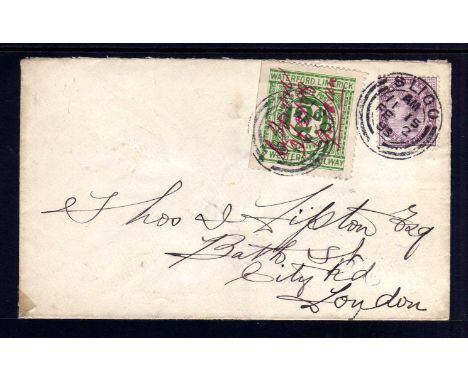 WATERFORD, LIMERICK
WESTERN RAILWAY
SLIGO
AM
15
Thos J Lipton Esq
Bath St
City Rd
London